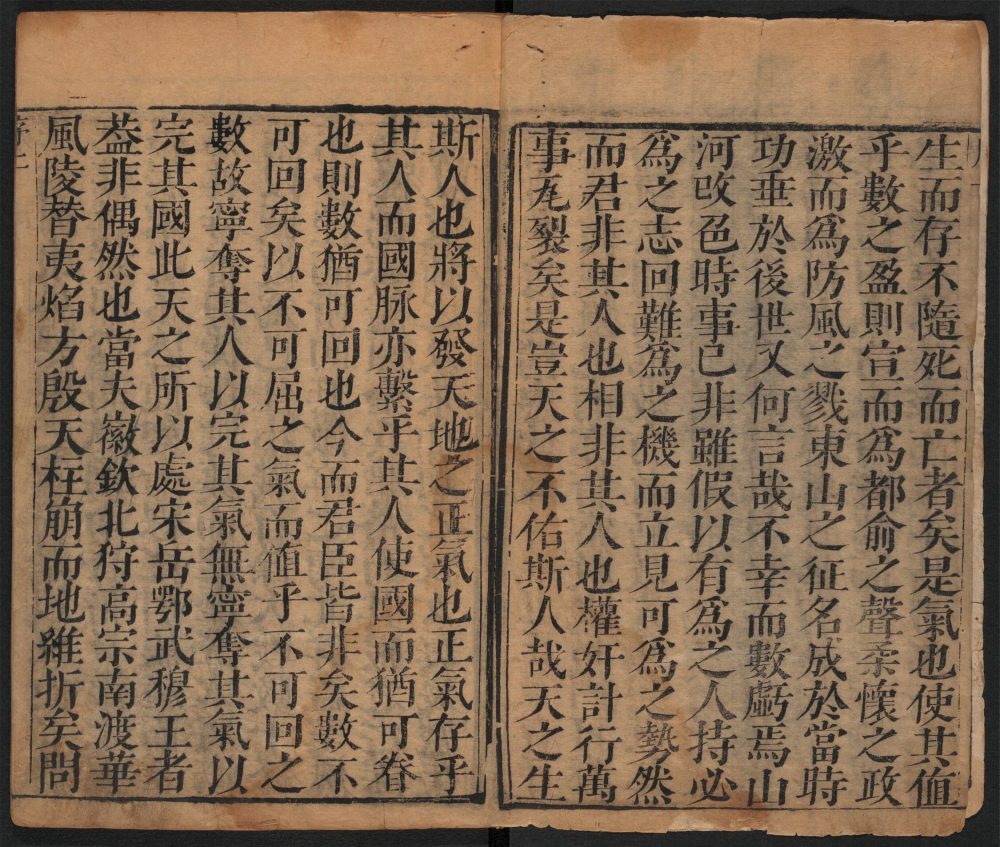 生而存不隨死而亡者矣是氣也使其值
乎數之盈則宣而爲都俞之聲柔懷之政
激而爲防風之戮東山之征名成於當時
功垂於後世又何言哉不幸而數虧焉山
河改色時事已非雖假以有爲之人持必
爲之志回難爲之機而立見可爲之勢然
而君非其人也相非其人也權奸計行萬
事瓦裂矣是豈天之不佑斯人哉天之生
斯人也將以發天地之正氣也正氣存乎
其人而國脉亦繫乎其人使國而猶可眷
也則數猶可回也今而君臣皆非矣數不
可回矣以不可屈之氣而值乎不可回之
數故寧奪其人以完其氣無寧奪其氣以
完其國此天之所以處宋岳鄂武穆王者
葢非偶然也當夫徽欽北狩高宗南渡華
風陵替夷焰方殷天柱崩而地維折矣問